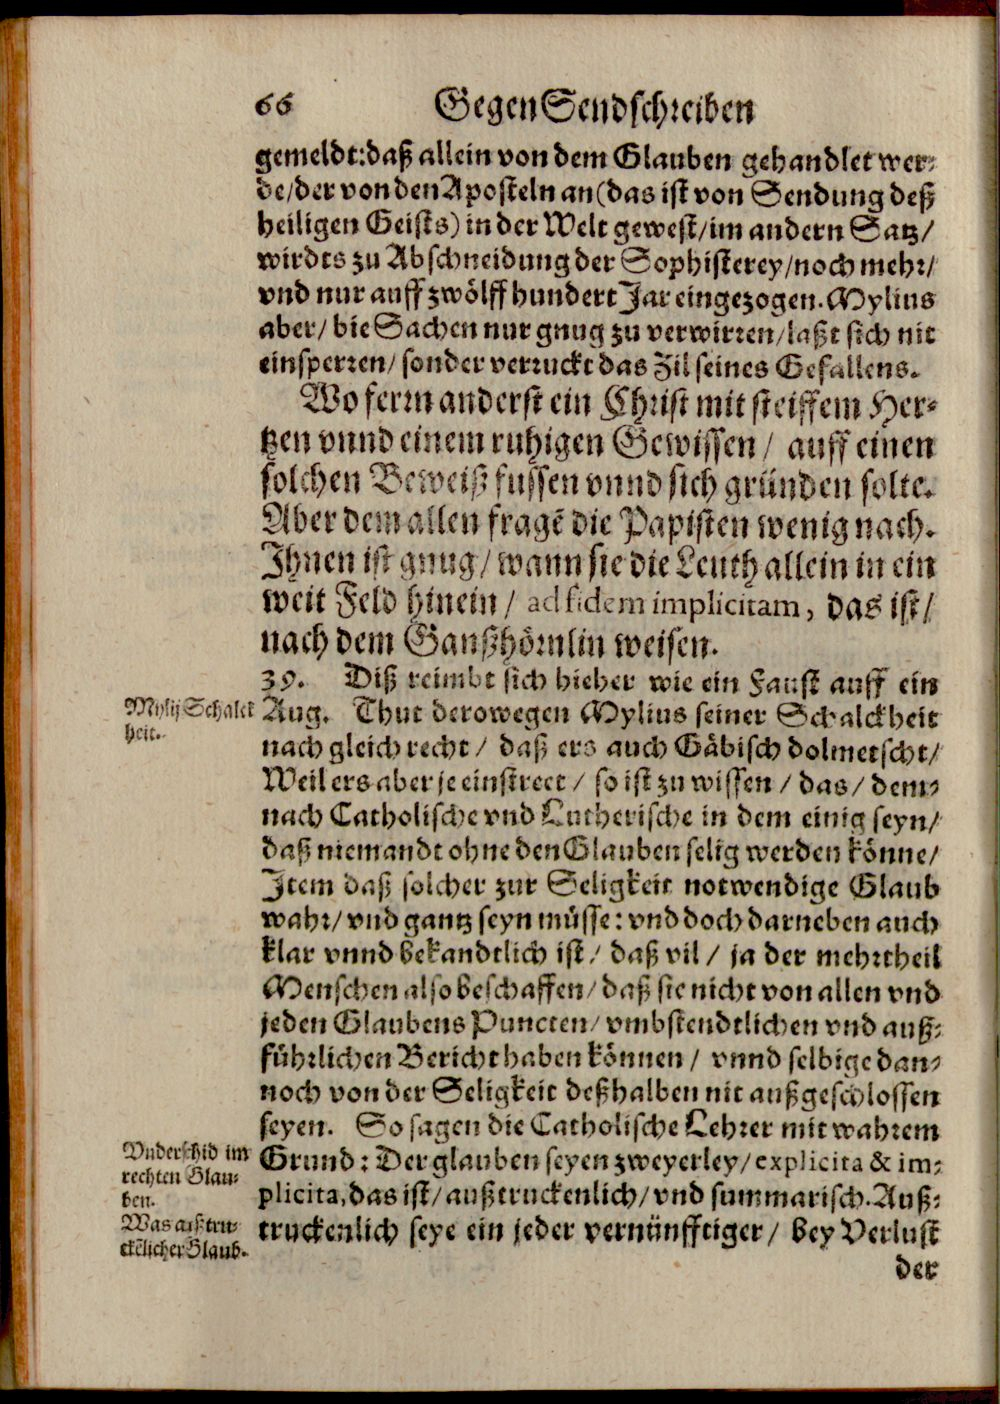 66 Gegen Sendschreiben
gemeldt: daß allein von dem Glauben gehandlet wer-
de/ der von den Aposteln an (das ist von Sendung deß
heiligen Geists) in der Welt gewest/ im andern Satz/
wirdts zu Abschneidung der Sophisterey/ noch mehr/
vnd nur auff zwölff hundert Jar eingezogen. Mylius
aber/ bie Sachen nur gnug zu verwirren/ laßt sich nit
einsperren/ sonder verruckt das Zil seines Gefallens.
Wo ferrn anderst ein Christ mit steiffem Her-
tzen vnnd einem ruhigen Gewissen/ auff einen
solchen Beweiß fussen vnnd sich gründen solte.
Aber dem allen fragẽ die Papisten wenig nach.
Ihnen ist gnug/ wann sie die Leuth allein in ein
weit Feld hinein/ ad fidem implicitam, das ist/
nach dem Ganßhörnlin weisen.
39. Diß reimbt sich hieher wie ein Faust auff ein
Mylij Schalck
heit.
Aug. Thut derowegen Mylius seiner Schalckheit
nach gleich recht/ daß ers auch Gäbisch dolmetscht/
Weil ers aber je einstreet/ so ist zu wissen/ das/ dem-
nach Catholische vnd Lutherische in dem einig seyn/
daß niemandt ohne den Glauben selig werden könne/
Item daß solcher zur Seligkeit notwendige Glaub
wahr/ vnd gantz seyn müsse: vnd doch darneben auch
klar vnnd bekandtlich ist/ daß vil/ ja der mehrtheil
Menschen also beschaffen/ daß sie nicht von allen vnd
jeden Glaubens Puncten/ vmbstendtlichen vnd auß-
führlichen Bericht haben können/ vnnd selbige dan-
noch von der Seligkeit deßhalben nit außgeschlossen
seyen. So sagen die Catholische Lehrer mit wahrem
Vnderschid im
rechten Glau-
ben.
Grund: Der glauben seyen zweyerley/ explicita & im-
plicita, das ist/ außtruckenlich/ vnd summarisch. Auß-
Was außtru-
ckẽlicher Glaub.
truckenlich seye ein jeder vernünfftiger/ bey Verlust
der